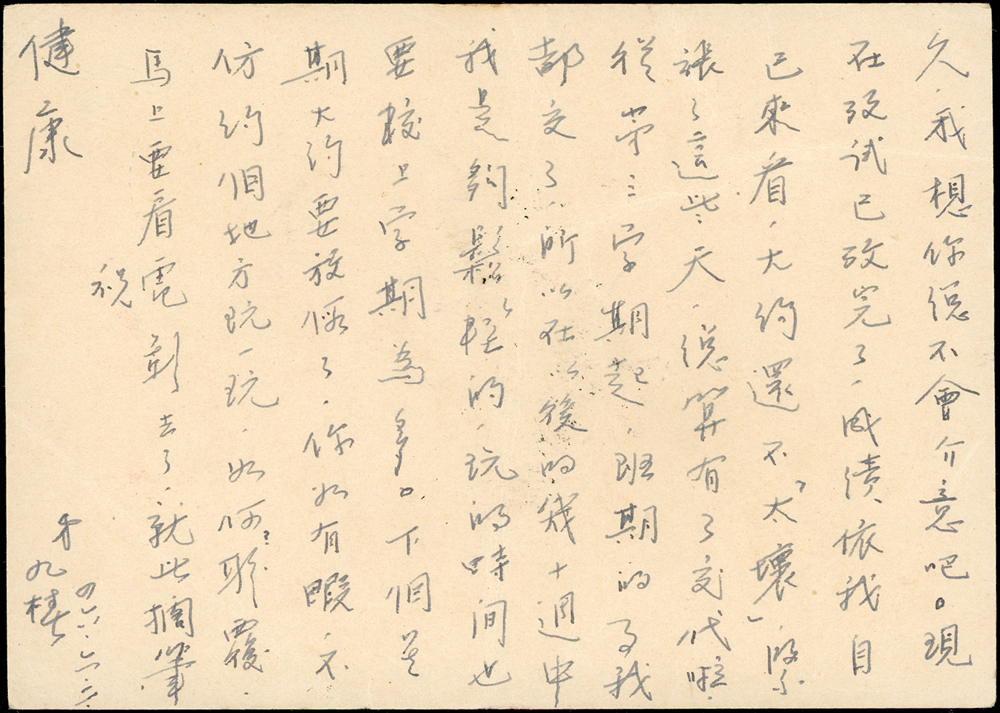 久，我想你總不會介意吧。現
在攷試已攷完了，成績依我自
已來看，大約還不“太壞”，緊
張了這些天，總算有了交代啦，
從第三字期起，班期的了我
都交了，所以在以後的幾十週中
我是夠鬆輕的，玩的時间也
要較上字期為多。下個星
期大約要放假了，你如有暇，不
仿約個地方玩一玩，如何？盼覆，
馬上要看電影去了，就此擱筆
祝
健康
弟
九桂
四六.六.三